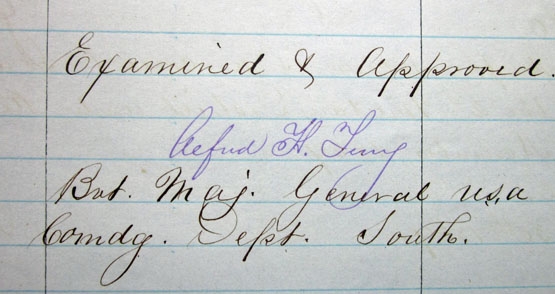 Examined & Approved.
Alfred H. Terry
Bvt. Maj. General U.S.A
Comdg. Dept. South.